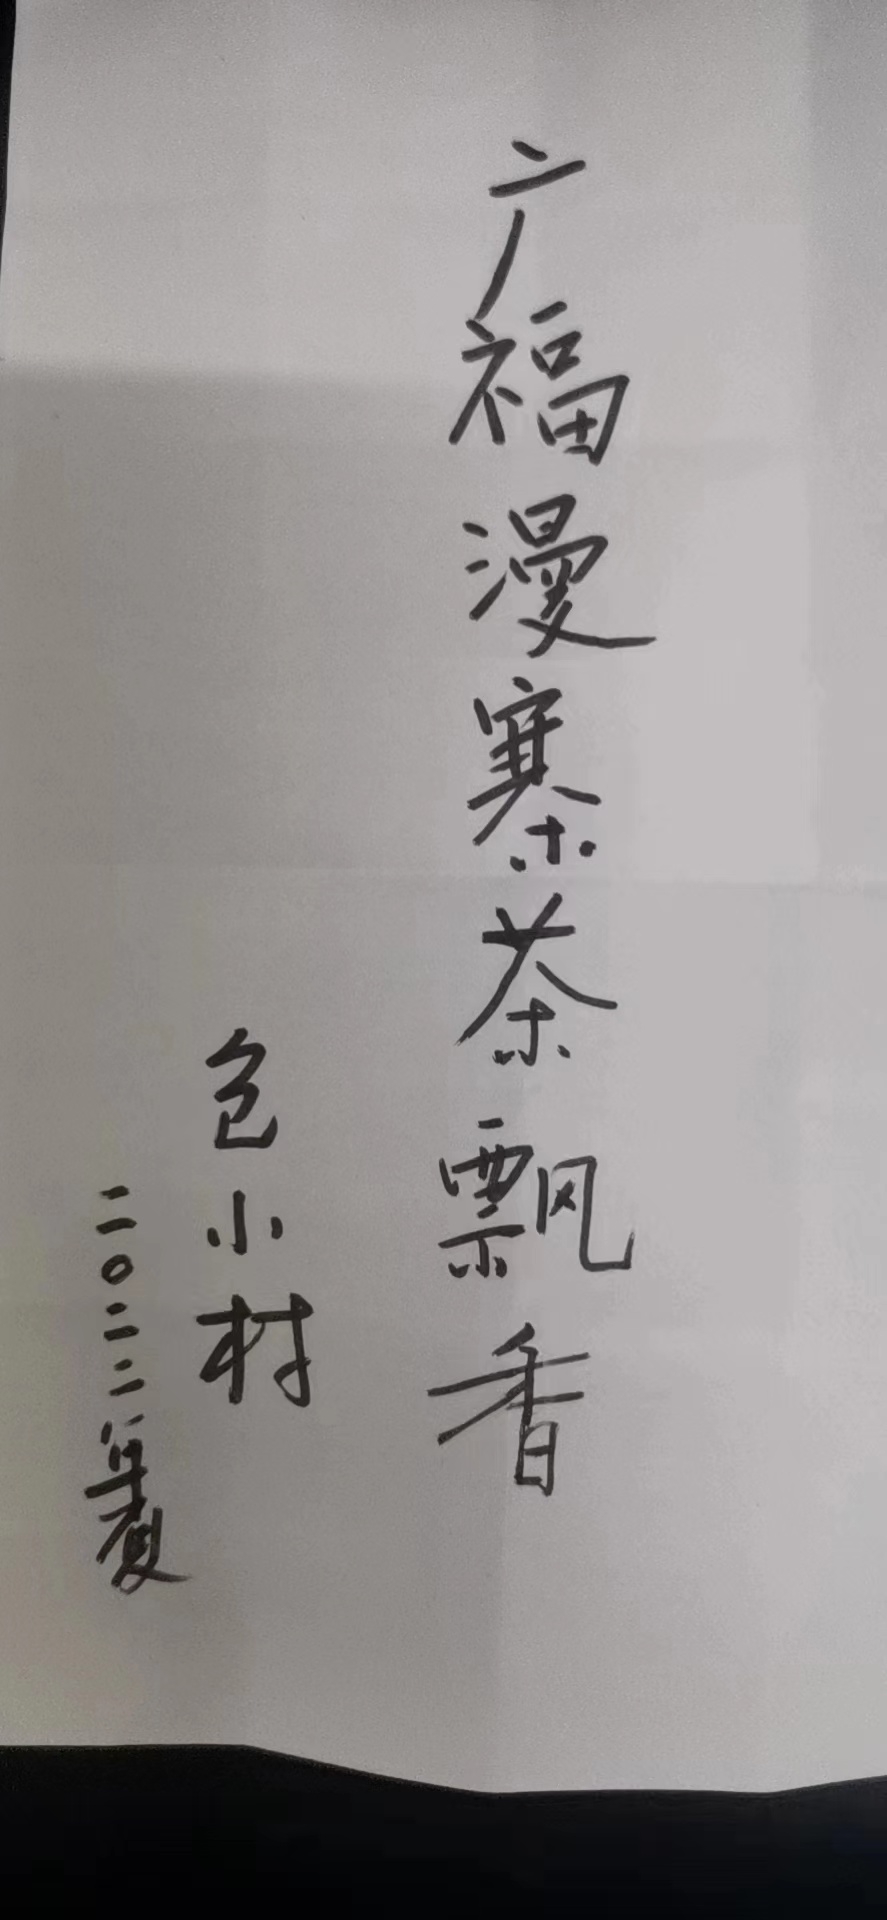 广福漫寨茶飘香
包小村
二〇二二年夏